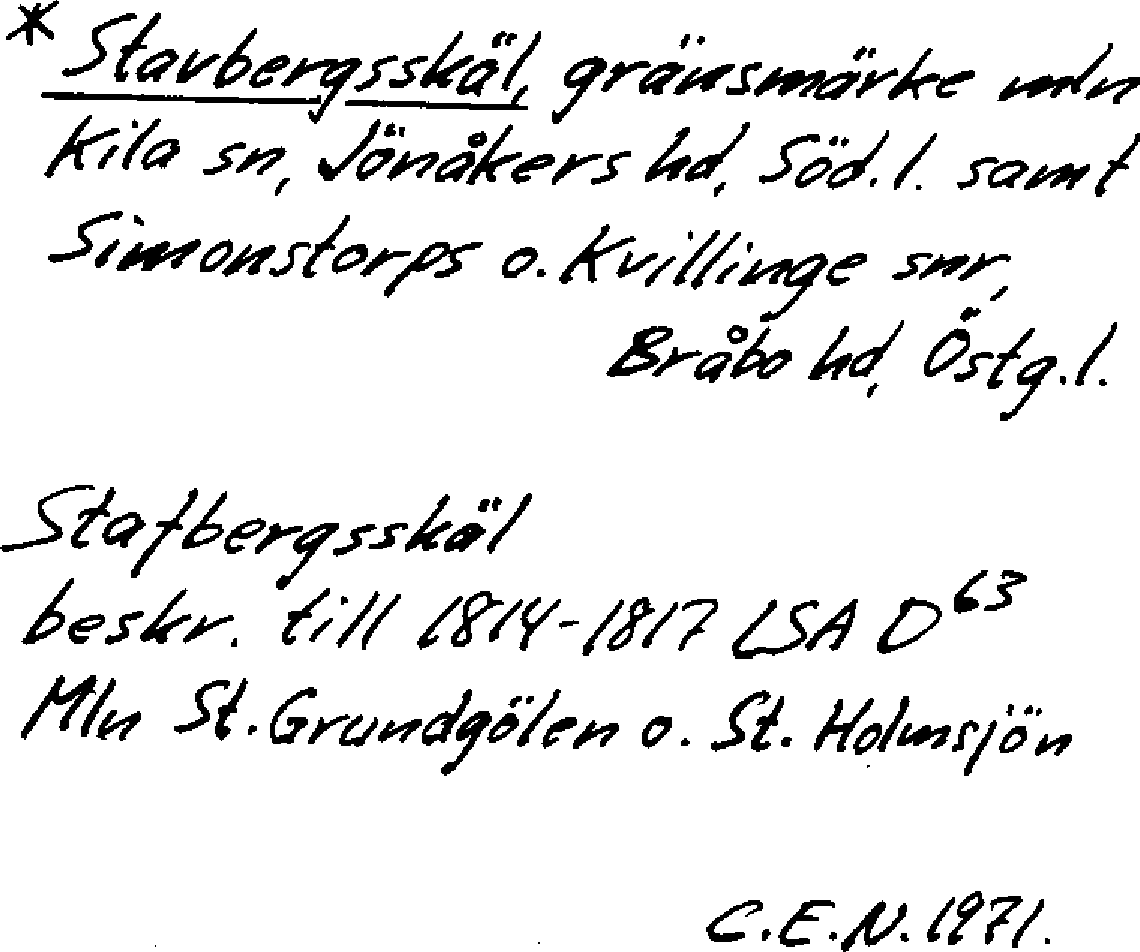 * Stavbergsskäl, gränsmärke mln
Kila sn, Jönåkers hd, Söd.l. samt
Simonstorps o. Kvillinge snr,
Bråbo hd, Östg.l.
Stafbergsskäl
beskr. till 1814-1817 LSA D63
Mln St. Grundgölen o. St. Holmsjön
C.E.N. 1971.